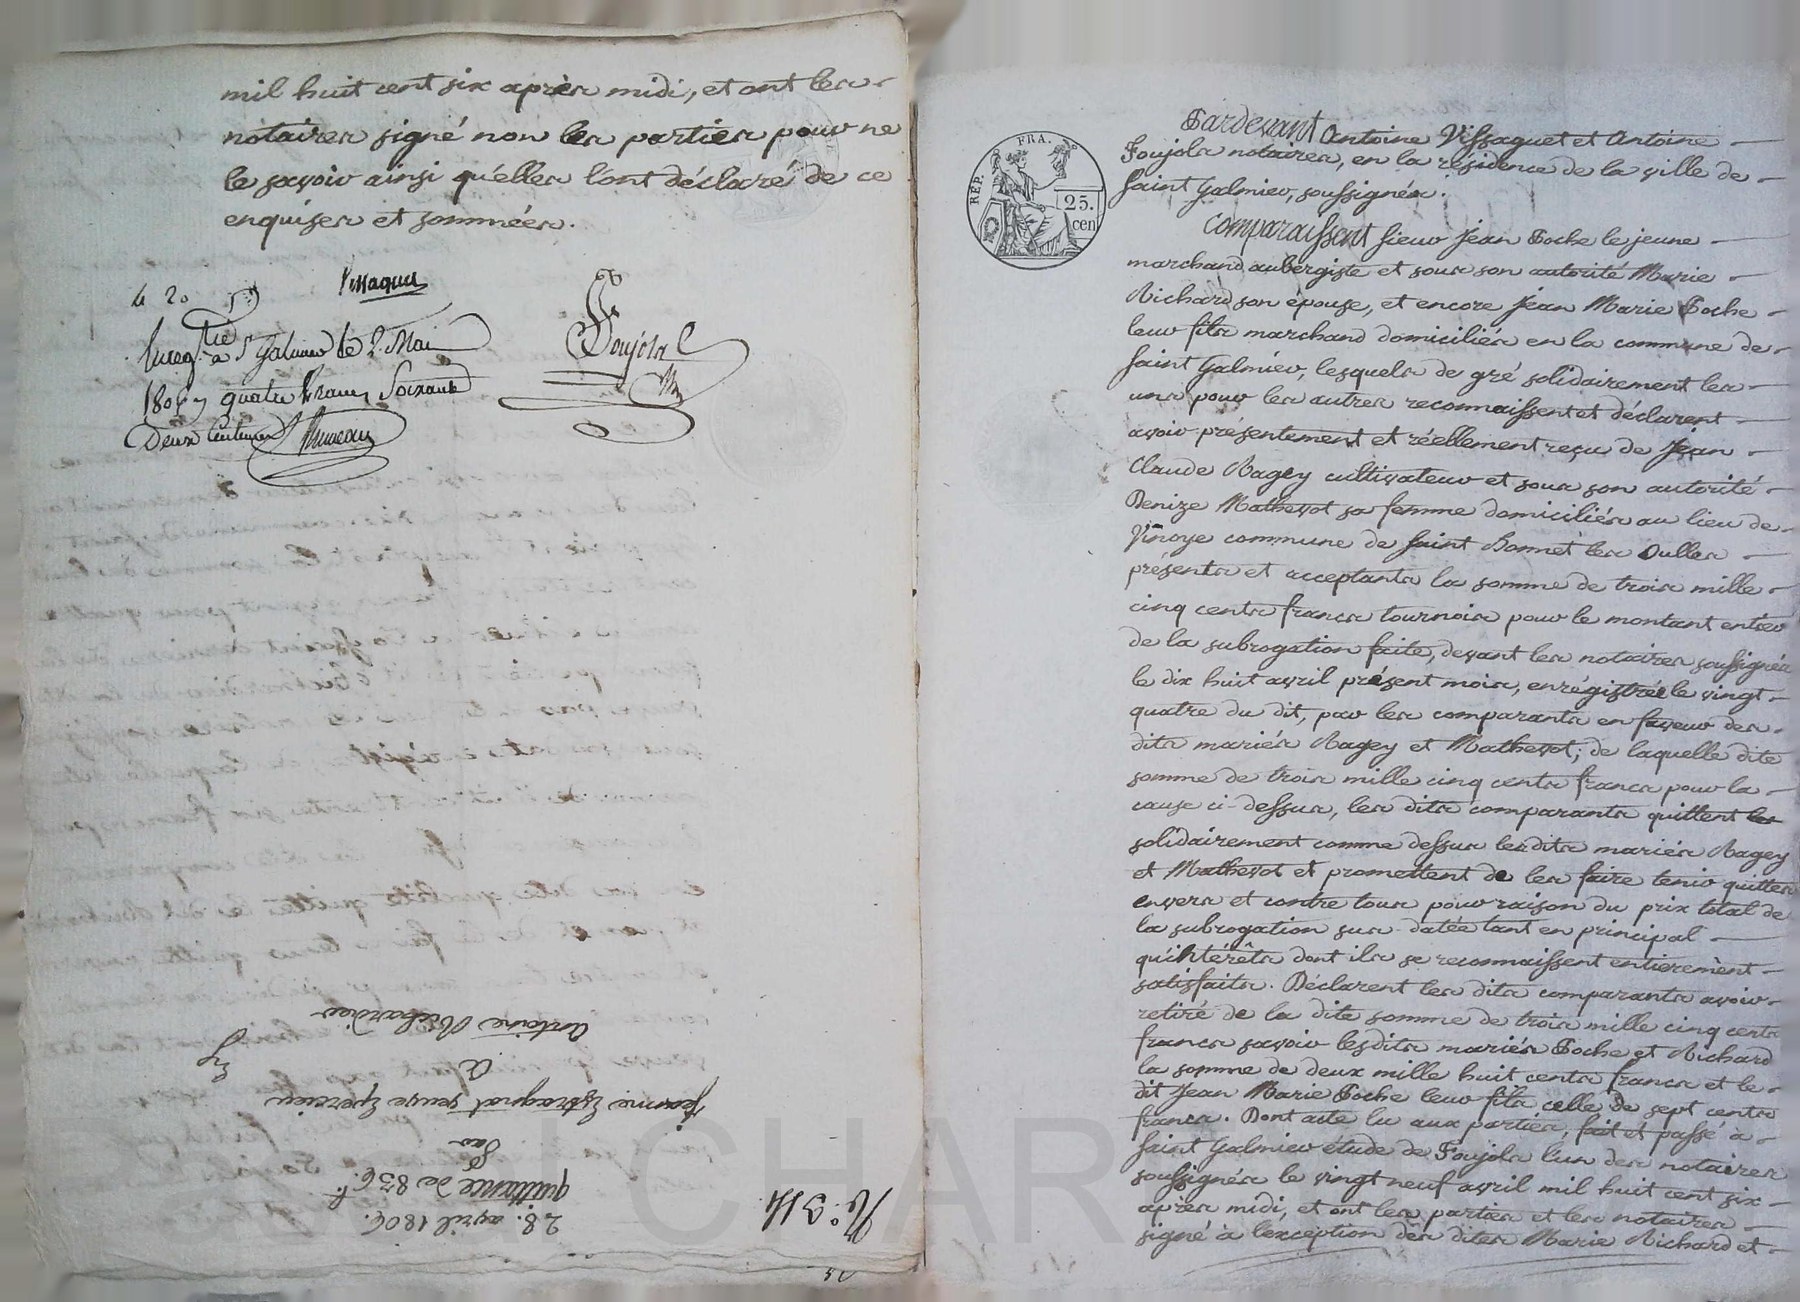 mil huit cent six après midi, et ont les
notaires signé non les parties pour ne
le savoir ainsi qu'elles l'ont déclaré de ce
enquises et sommées.
Vissaguet
Foujols
le 20
Enreg.tré à St Galmier le 2 Mai
1806 quatre francs Soixante
Deux Centimes
28. avril 1806.
quittance de 836 f.
par
jeanne veuve
à
antoine Richardier
N.º 314
REP. FRA.
25.
cen
Pardevant Antoine Vissaguet et Antoine
Foujols notaires, en la résidence de la ville de
saint Galmier, soussignés.
Comparaissent sieur Jean Poche le jeune
marchand aubergiste et sous son autorité Marie
Richard son épouse, et encore Jean Marie Poche
leur fils marchand domiciliés en la commune de
saint Galmier, lesquels de gré solidairement les
uns pour les autres reconnaissent et déclarent
avoir présentement et réellement reçu de Jean
Claude Ragey cultivateur et sous son autorité
Denize Mathevot sa femme domiciliés au lieu de
Vinoye commune de saint Bonnet les Oulles
présents et acceptants la somme de trois mille
cinq cents francs tournois pour le montant entier
de la subrogation faite, devant les notaires soussignés
le dix huit avril présent mois, enrégistrée le vingt
quatre du dit, par les comparants en faveur des
dits mariés Ragey et Mathevot; de laquelle dite
somme de trois mille cinq cents francs pour la
cause ci-dessus, les dits comparants quittent les
solidairement comme dessus lesdits mariés Ragey
et Mathevot et promettent de les faire tenir quittes
envers et contre tous pour raison du prix total de
la subrogation sus-datée tant en principal
qu'intérêts dont ils se reconnaissent entierement
satisfaits. Déclarent les dits comparants avoir
retiré de la dite somme de trois mille cinq cents
francs savoir lesdits mariés Poche et Richard
la somme de deux mille huit cents francs et le
dit Jean Marie Poche leur fils celle de sept cents
francs. Dont acte lu aux parties, fait et passé à
saint Galmier étude de Foujols l'un des notaires
soussignés le vingt neuf avril mil huit cent six
après midi, et ont les parties et les notaires
signé à l'exception des dites Marie Richard et